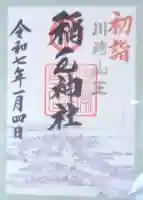 初詣
川崎山王
稲毛神社
令和七年一月四日